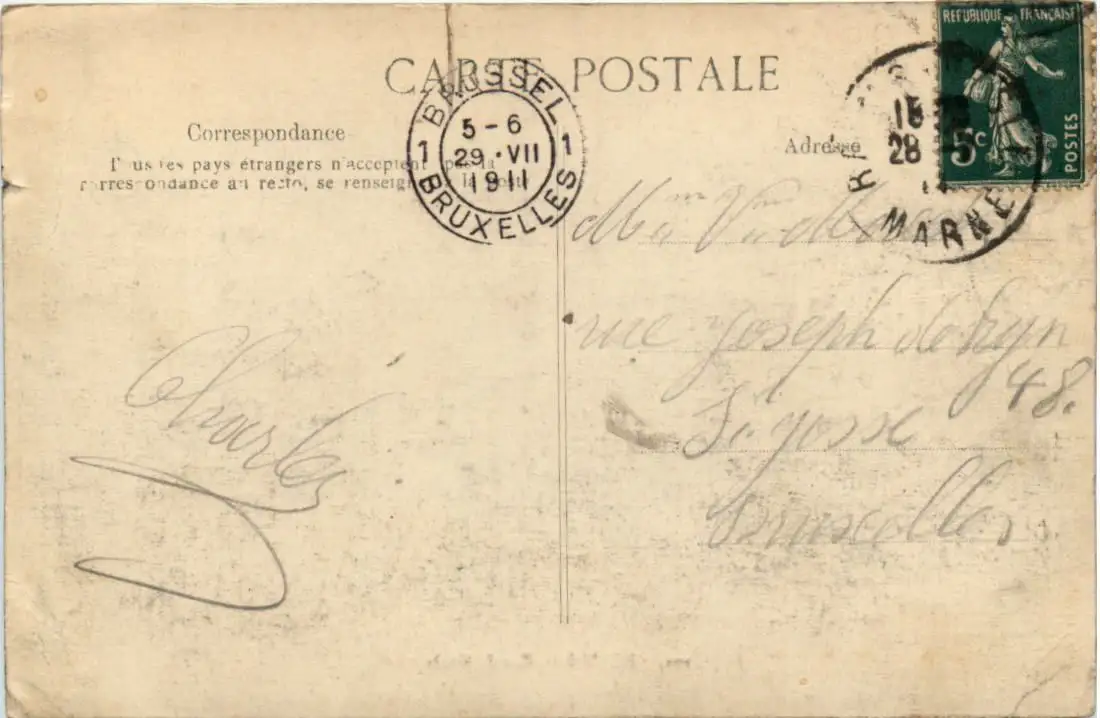 CARTE POSTALE
Correspondance
Tous les pays étrangers n'acceptent pas la
correspondance au recto, se renseigner à la poste
Charles
BRUSSEL
1 5-6 1
29·VII
1911
BRUXELLES
REPUBLIQUE FRANÇAISE
5c
POSTES
15
28
MARNE
Adresse
rue Joseph
48.
St Josse
Bruxelles